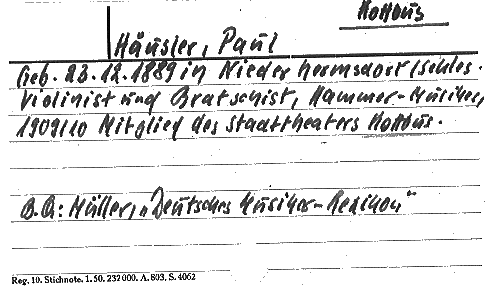 Kottbus
Häusler, Paul
Geb. 23.12.1889 in Nieder hermsdorf/Schles.
Violinist und Bratschist, Kammer-Musiker,
1909/10 Mitglied des Stadttheaters Kottbus.
B.Q: Müller, „Deutsches Musiker-Lexikon"
Reg. 10. Stichnote. 1. 50. 232000. A. 803. S. 4062